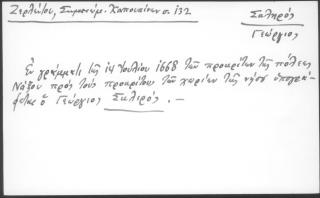 Ζερλέντου, Σημειώμ. Καπουκίνων σ. 132
Σκληρός
Γεώργιος
Ἐν γράμματι τῆς 14 Ἰουλίου 1668 τῶν προκρίτων τῆς πόλεως
Νάξου πρός τούς προκρίτους τῶν χωρίων τῆς νήσου ὑπογρά-
φεται ὁ Γεώργιος Σκλιρός. —